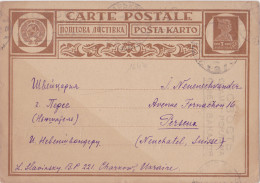 CARTE POSTALE
ПОШТОВА ЛИСТІВКА
POŜTA-KARTO
Швейцария
г. Персе
И. Невеншвандеру
J. Neuenschwander
Avenue Fornachon 16
Perseux
(Neuchatel, Suisse)
L. Slavinsky B.P. 221 Charkow, Ukraine